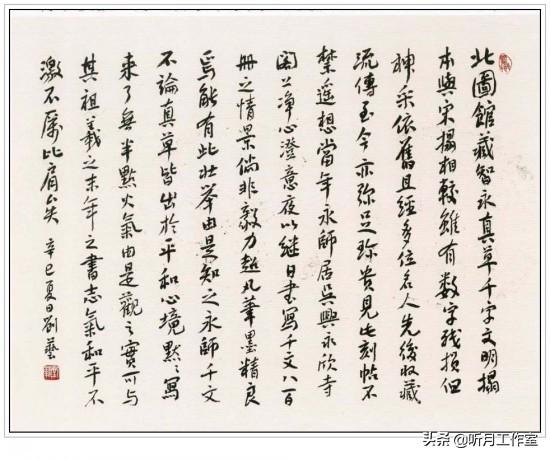 北圖館藏智永真草千字文明搨
本與宋搨相較雖有數字殘損但
神采依舊且經多位名人先後收藏
流傳至今亦弥足珍貴見此刻帖不
禁遥想當年永師居吳興永欣寺
閣上净心澄意夜以継日書寫千文八百
冊之情景倘非毅力超凡筆墨精良
焉能有此壮举由是知之永師千文
不論真草皆出於平和心境默〻寫
来了無半點火氣由是觀之實可与
其祖羲之末年之書志氣和平不
激不厲比肩矣
辛巳夏日劉藝
头条@听月工作室